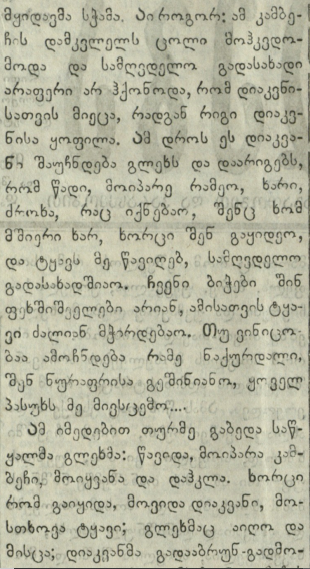 მყიდავმა სჭამა. აი როგორ: ამ კამბე-
ჩის დამკვლელს ცოლი მოჰკვდო-
მოდა და სამღვდელო გადასახადი
არაფერი არ ჰქონოდა, რომ დიაკვნი-
სათვის მიეცა, რადგან რიგი დიაკვ-
ნისა ყოფილა. ამ დროს ეს დიაკვა-
ნი შაუჩნდება გლეხს და დაარიგებს,
რომ წადი, მოიპარე რამეო, ხარი,
ძროხა, რაც იქნებაო, შენც ხომ
მშიერი ხარ, ხორცი შენ გაყიდეო,
და ტყავს მე წავიღებ, სამღვდელო
გადასახადშიაო. ჩვენი ბიჭები შინ
ფეხშიშველები არიან, ამისათვის ტყა-
ვი ძალიან მჭირდებაო. თუ ვინიცო-
ბაა ამოჩნდება რამე ნაქურდალი,
შენ ნურაფრისა გეშინიანო, ყოველ
პასუხს მე მივსცემო....
ამ იმედებით თურმე გაბედა საწ-
ყალმა გლეხმა: წავიდა, მოიპარა კამ-
ბეჩი, მოიყვანა და დაჰკლა. ხორცი
რომ გაიყიდა, მოვიდა დიაკვანი, მო-
სთხოვა ტყავი; გლეხმაც აიღო და
მისცა; დიაკვანმა გადააბრუნ-გადმო-